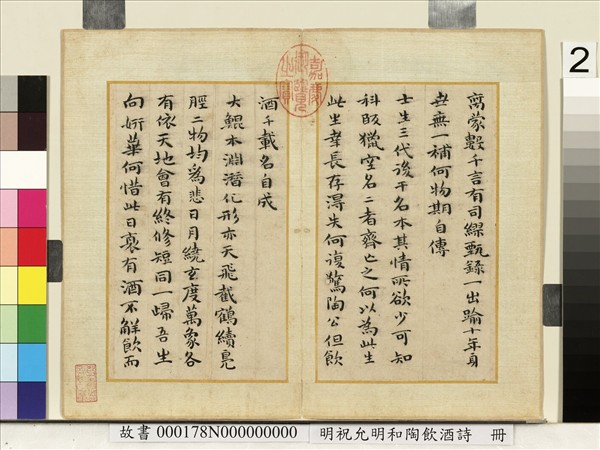 寓蒙數千言有司繆甄錄一出踰十年身
世無一補何物期自傳
士生三代後干名本其情所欲少可知
科販獵空名二者齊亡之何以為此生
此生幸長存淂失何復驚陶公但飲
酒千載名自成
大鯤本淵潛化形亦天飛截鶴續鳧
脛二物均為悲日月繞玄度萬象各
有依天地會有終修短同一歸吾生
向妍華何惜此日衰有酒不解飲而
嘉慶御覽之寶
2
故書 000178N000000000 明祝允明和陶飲酒詩 冊